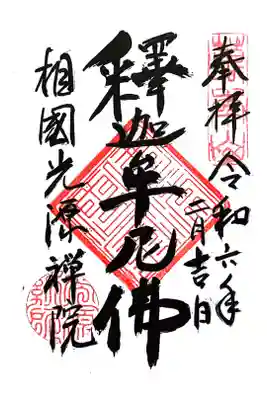 奉拝
令和六年
二月吉日
釋迦牟尼佛
相國光源禅院